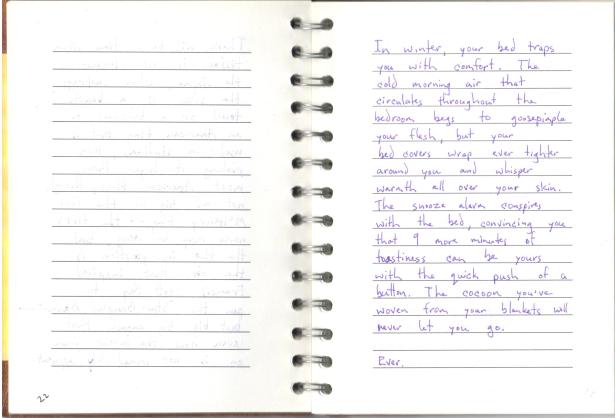 In winter, your bed traps
you with comfort. The
cold morning air that
circulates throughout the
bedroom begs to goosepimple
your flesh, but your
bed covers wrap ever tighter
around you and whisper
warmth all over your skin.
The snooze alarm conspires
with the bed, convincing you
that 9 more minutes of
toastiness can be yours
with the quick push of a
button. The cocoon you've
woven from your blankets will
never let you go.
Ever.
22